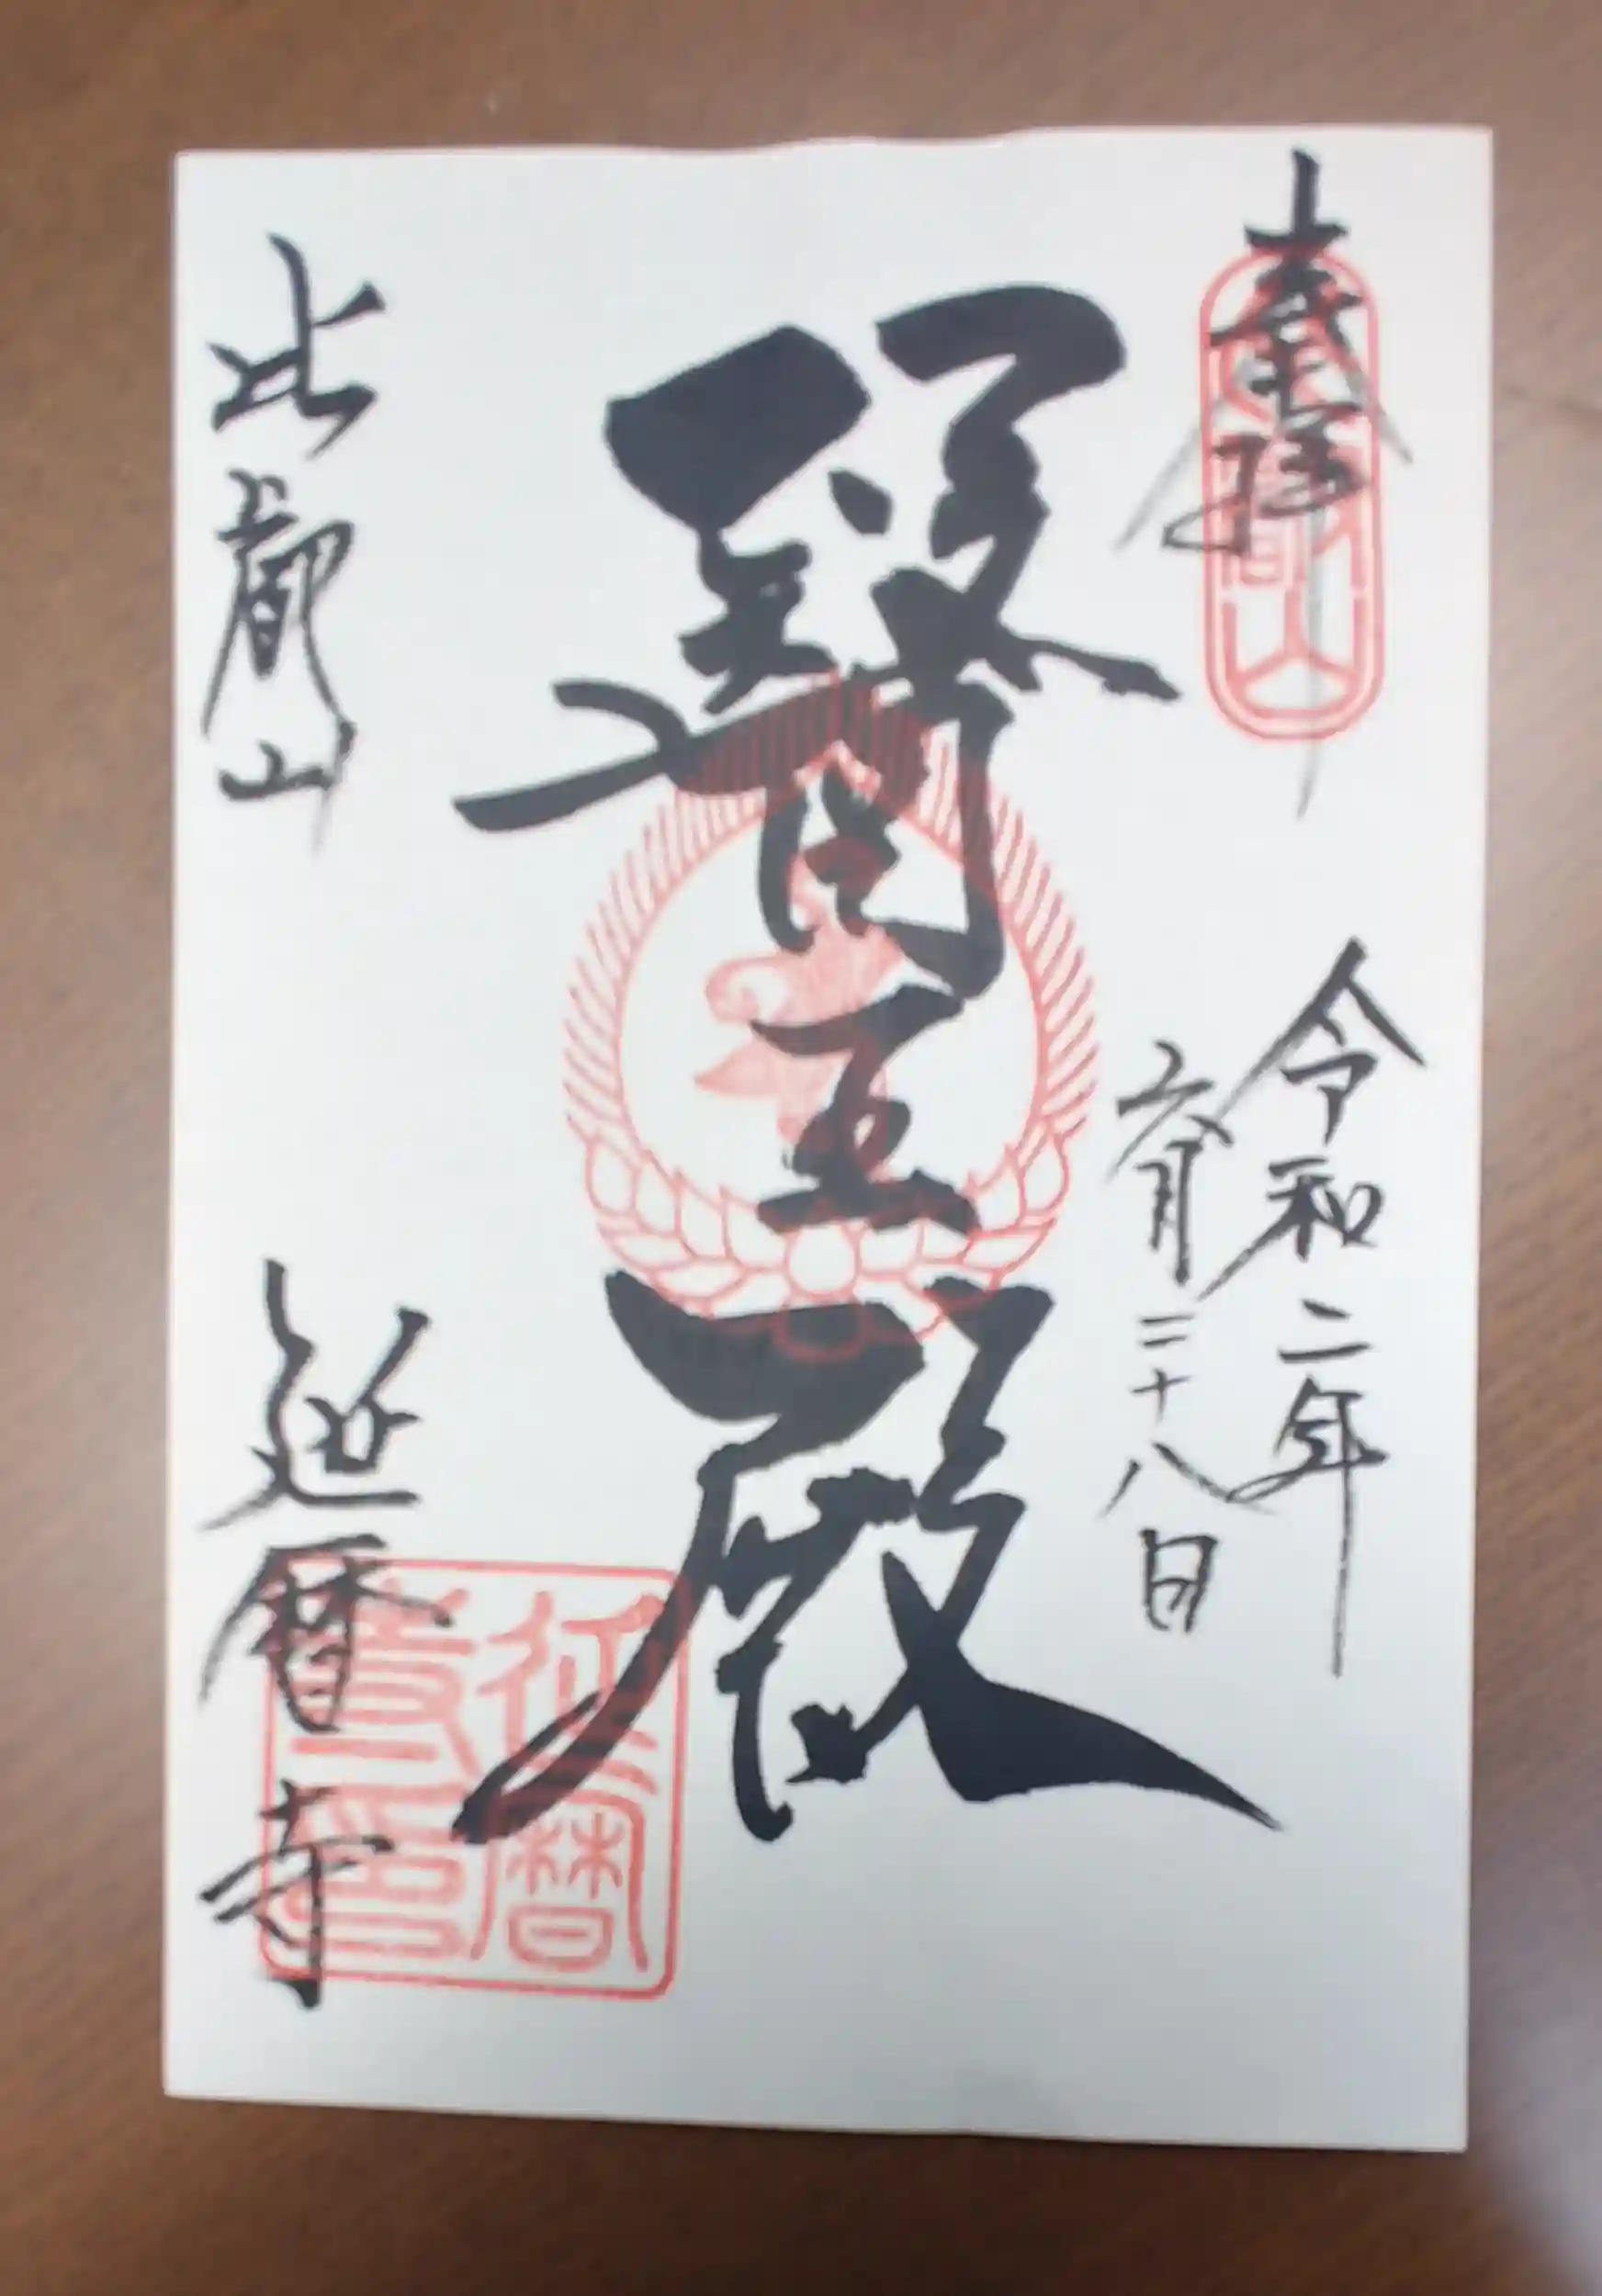 奉拝
令和二年
六月二十八日
醫王殿
比叡山
延暦寺
延暦
寺印